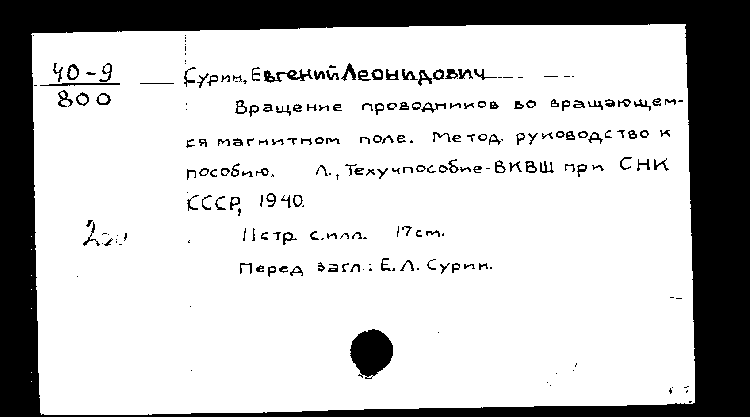 40-9
800
Сурин, Евгений Леонидович
Вращение проводников во вращающем-
ся магнитном поле. Метод. руководство к
пособию. Л., Техучпособие-ВКВШ при СНК
СССР, 1940.
11 стр. с илл. 17 см.
Перед загл.: Е.Л. Сурин.